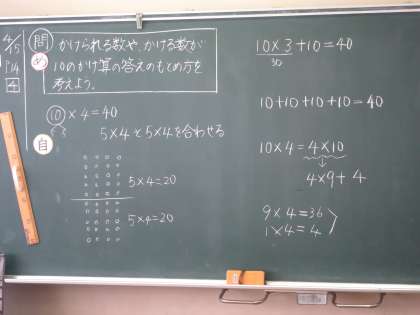 4/5
P14
4
問 かけられる数や、かける数が
め 10のかけ算の答えのもとめ方を
考えよう。
10×4=40
5×4と5×4を合わせる
自
5×4=20
5×4=20
10×3+10=40
30
10+10+10+10=40
10×4=4×10
4×9+4
9×4=36
1×4=4